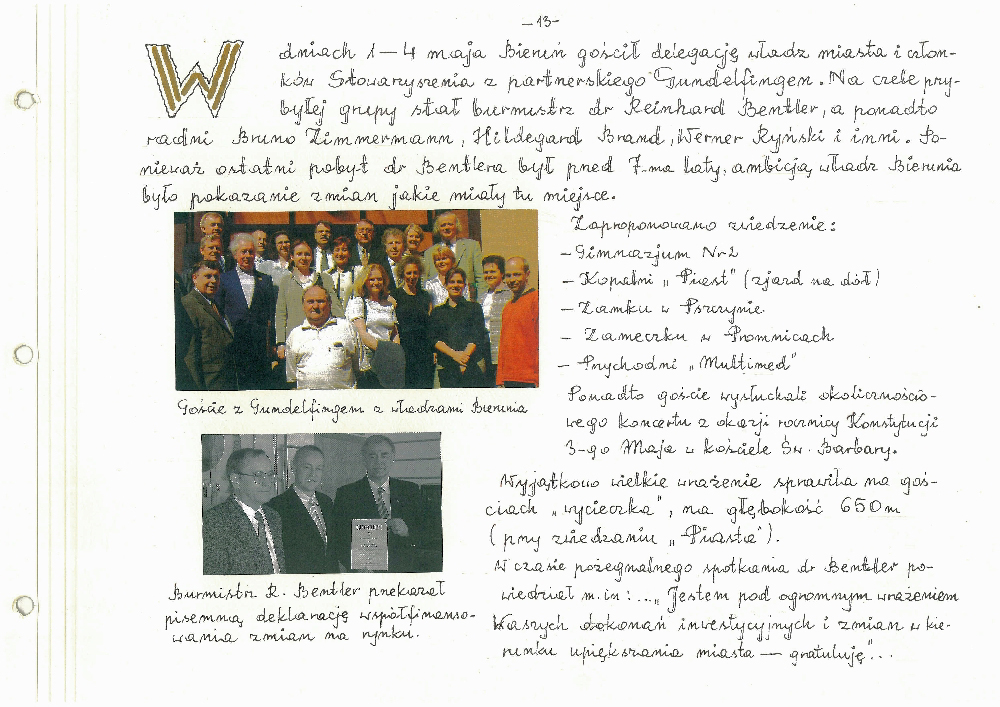 -13-
W dniach 1-4 maja Bieruń gościł delegację władz miasta i człon-
ków Stowarzyszenia z partnerskiego Gundelfingen. Na czele przy-
byłej grupy stał burmistrz dr Reinhard Bentler, a ponadto
radni Bruno Zimmermann, Hildegard Brand, Werner Ryński i inni. Po-
nieważ ostatni pobyt dr Bentlera był przed 7-ma laty, ambicją władz Bierunia
było pokazanie zmian jakie miały tu miejsce.
Zaproponowano zwiedzenie:
- Gimnazjum Nr 2
- Kopalni „Piast" (zjazd na dół)
- Zamku w Pszczynie
- Zameczku w Promnicach
- Przychodni „Multimed"
Ponadto goście wysłuchali okolicznościo-
wego koncertu z okazji rocznicy Konstytucji
3-go Maja w kościele Św. Barbary.
Goście z Gundelfingen z władzami Bierunia
Wyjątkowo wielkie wrażenie sprawiła na goś-
ciach „wycieczka", na głębokość 650m
(przy zwiedzaniu „Piasta").
W czasie pożegnalnego spotkania dr Bentler po-
wiedział m.in: ...„Jestem pod ogromnym wrażeniem
Waszych dokonań inwestycyjnych i zmian w kie-
runku upiększania miasta — gratuluję"...
Burmistrz R. Bentler przekazał
pisemną deklarację współfinanso-
wania zmian na rynku.